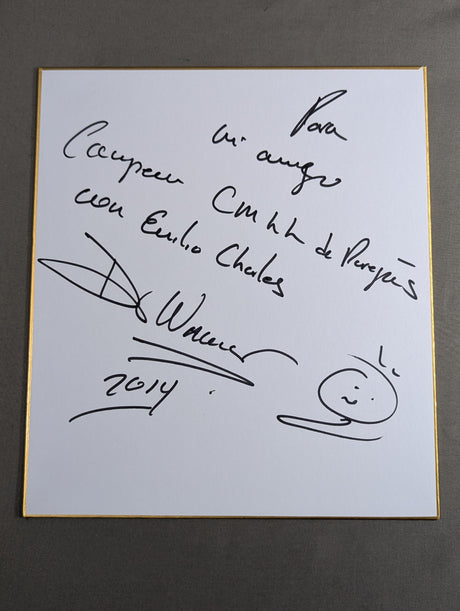 Para
mi amigo
Campeon CMLL de Parejas
con Emilio Charles
Dr Wagner
2014